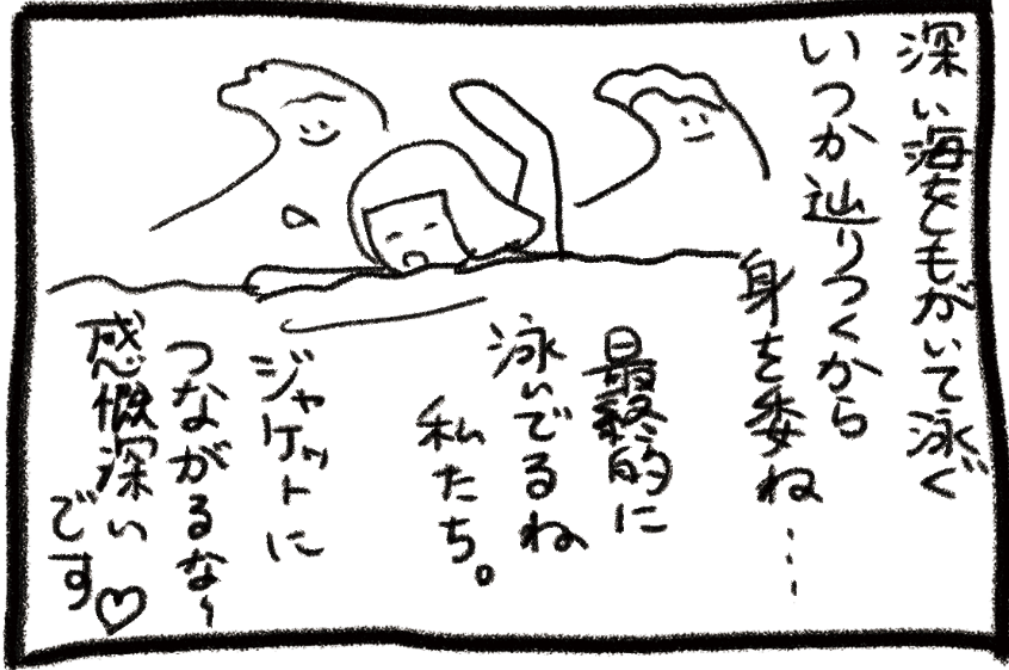 深い海をともがいて泳ぐ
いつか辿りつくから
身を委ね…
最終的に
泳いでるね
私たち。
ジャケットに
つながるな〜
感慨深い
です♡